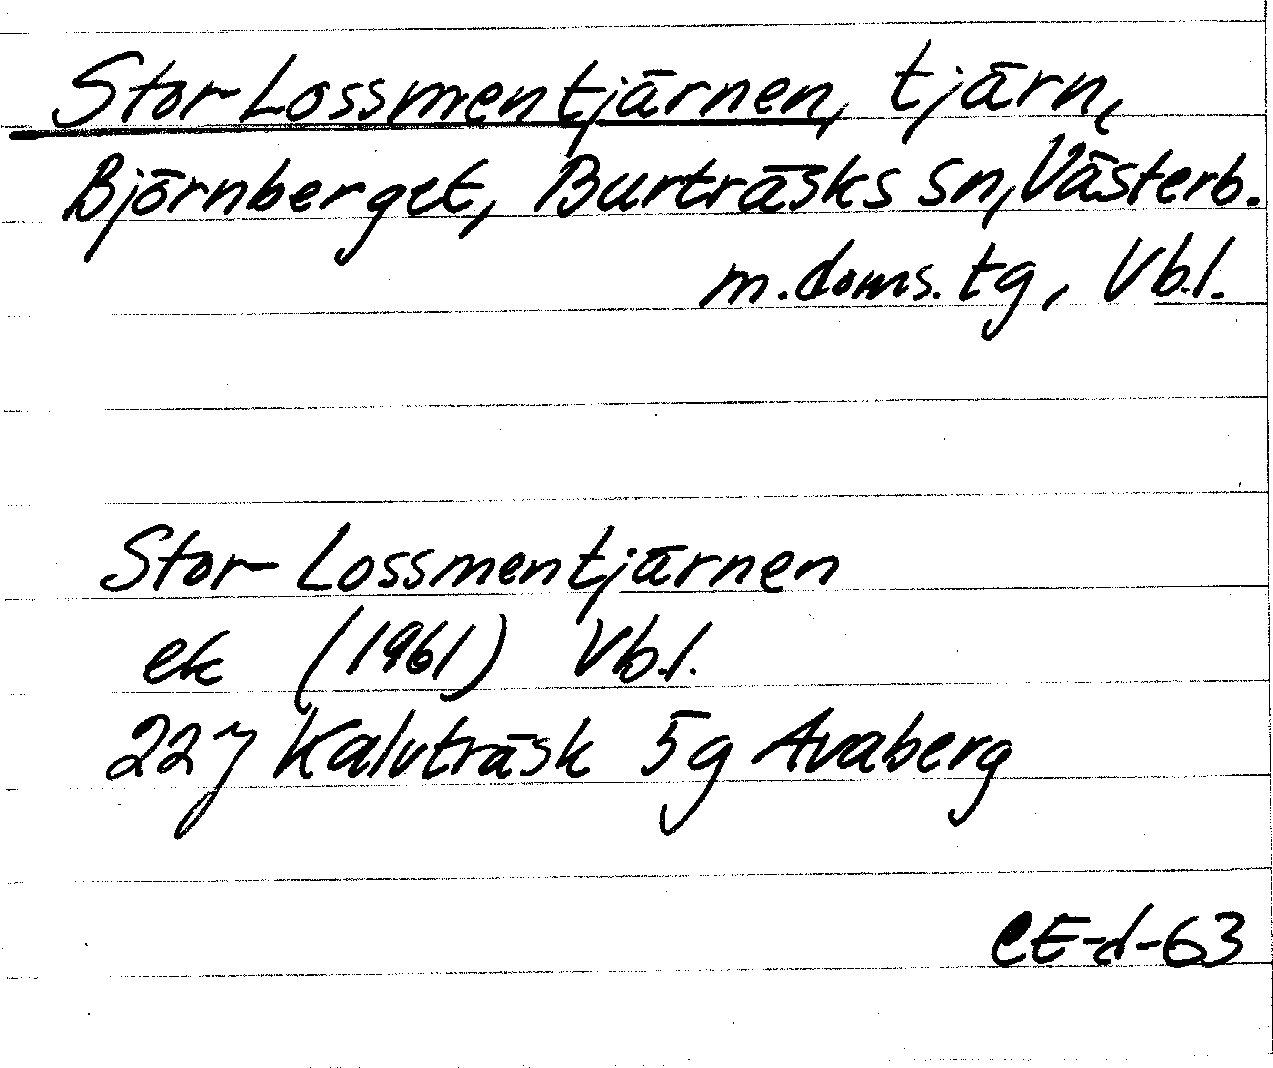 Stor-Lossmentjärnen, tjärn,
Björnberget, Burträsks sn, Västerb.
m. doms. tg, Vb.l.
Stor-Lossmentjärnen
ek (1961) Vb.l.
22J Kalvträsk 5g Avaberg
CE-d-63